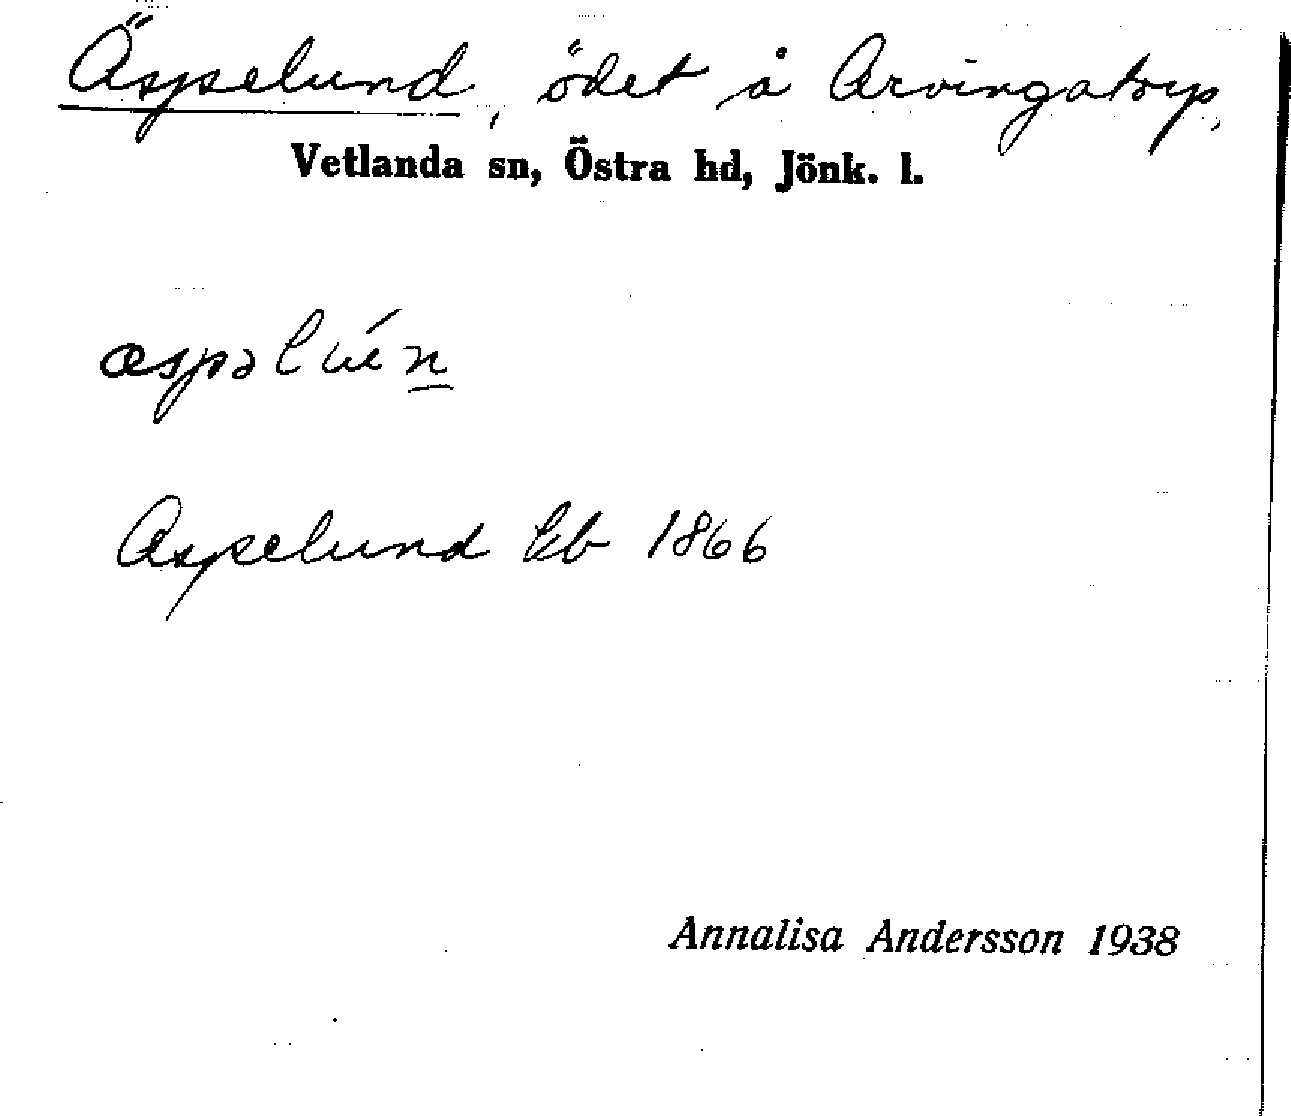 Äspelund, ödet å Arvingatorp,
Vetlanda sn, Östra hd, Jönk. l.
Aspelund Eb 1866
Annalisa Andersson 1938